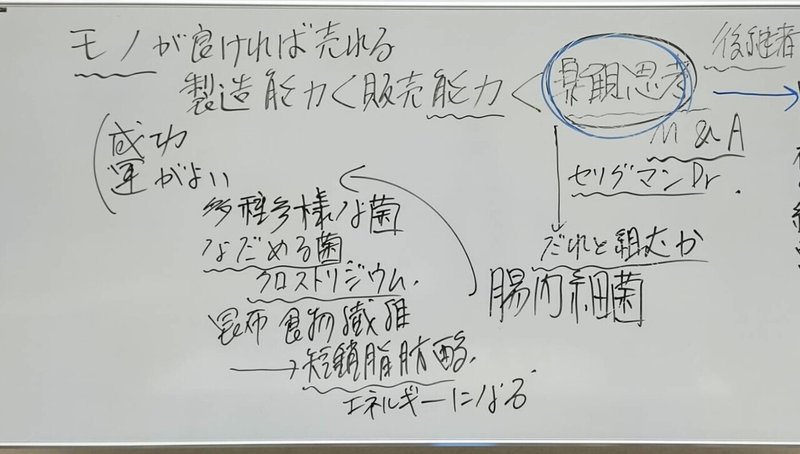 モノが良ければ売れる
後継者
製造能力<販売能力<楽観思考→
M&A
セリグマンDr.
(成功
運がよい
多種多様な菌
なだめる菌
クロストリジウム.
だれと組むか
腸内細菌
昆布 食物繊維
→短鎖脂肪酸.
エネルギーになる.